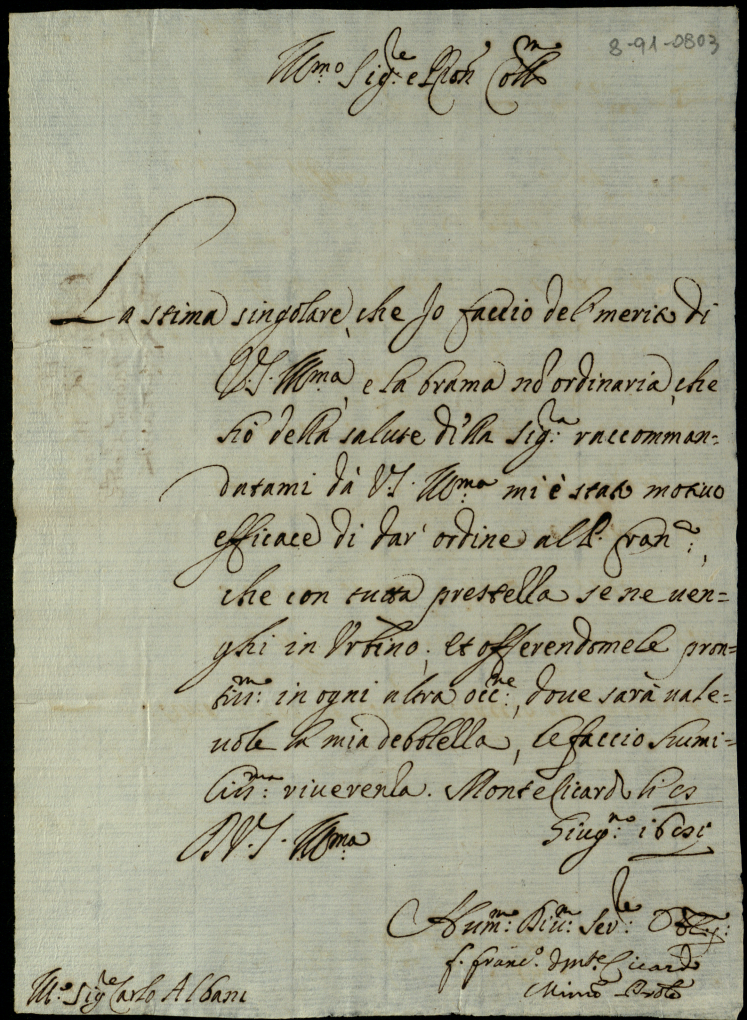 8-91-0803
Illmo Sig:re e Pron Collmo
La stima singolare, che Io faccio del merito di
V.S. Illma, e la brama nō ordinaria, che
hò della salute della Sig:ra raccomman=
datami dà V.S. Illma mi è stato motivo
efficace di dar' ordine al P. Fran:co,
che con tutta prestezza se ne ven=
ghi in Urbino, et offerendomele pron=
tiss:mo in ogni altra occ:ne, dove sarà vale=
vole la mia debolezza, le faccio humi=
liss:ma riverenza. Monte Cicardo li
Giug:no
D V.S. Illma
Hum:mo Div:mo Ser:re Obblig:
f. Franc:o d Mte Cicardo
Minro Prole
Illmo Sigre Carlo Albani